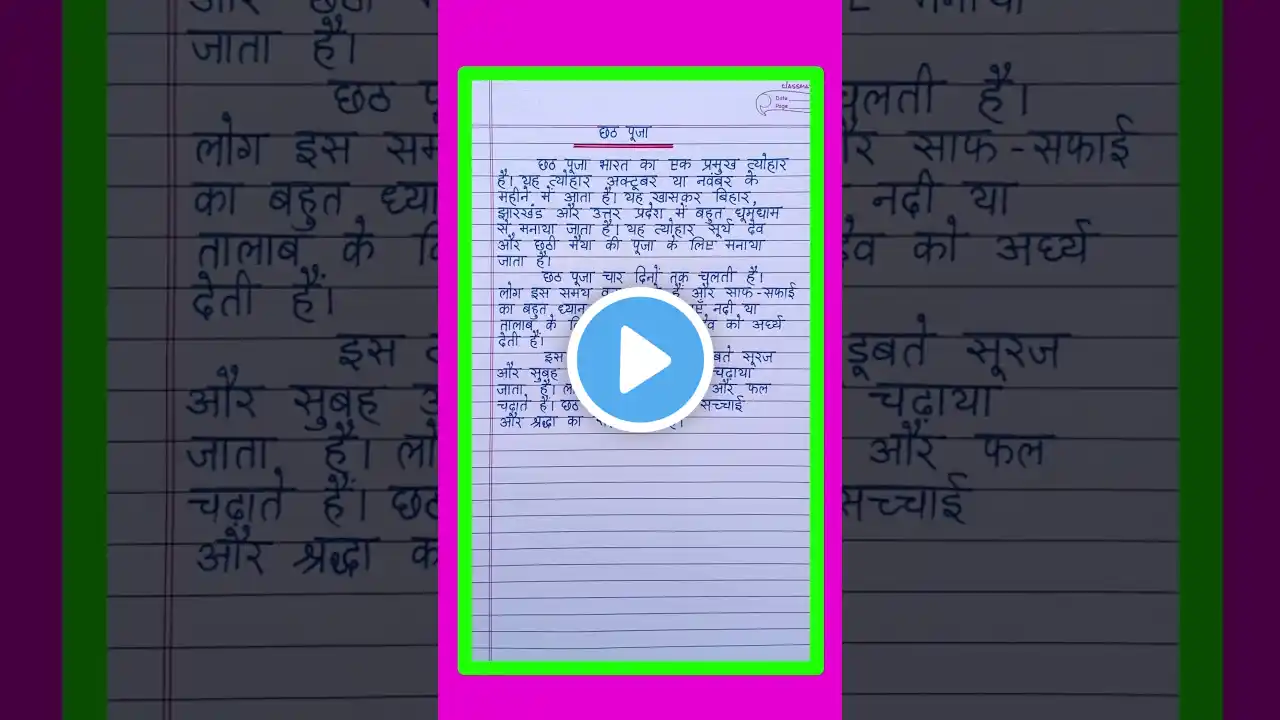 CLASSMA
Date
Page
छठ पूजा
छठ पूजा भारत का एक प्रमुख त्योहार
है। यह त्योहार अक्टूबर या नवंबर के
महीने में आता है। यह खासकर बिहार,
झारखंड और उत्तर प्रदेश में बहुत धूमधाम
से मनाया जाता है। यह त्योहार सूर्य देव
और छठी मैया की पूजा के लिए मनाया
जाता है।
छठ पूजा चार दिनों तक चलती है।
लोग इस समय हैं और साफ-सफाई
का बहुत ध्यान नदी या
तालाब के को अर्घ्य
देती हैं।
इस सूरज
और सुबह चढ़ाया
जाता है। और फल
चढ़ाते हैं। छठ सच्चाई
और श्रद्धा का